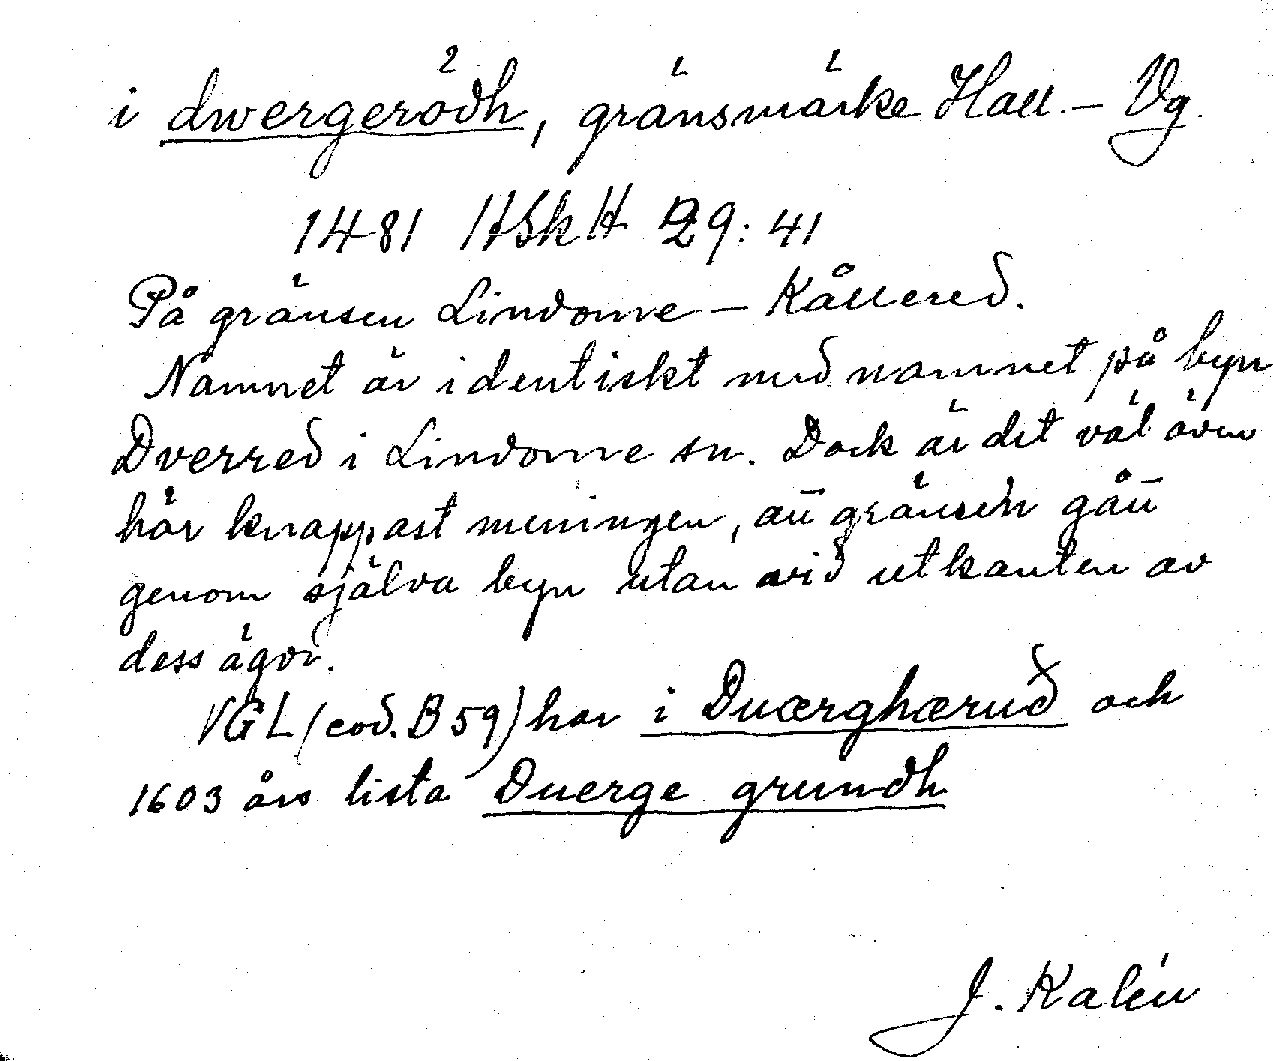 i dwergerödh, gränsmärke Hall. – Vg.
1481 HSkH 29: 41
På gränsen Lindome – Kållered.
Namnet är identiskt med namnet på byn
Dverred i Lindome sn. Dock är det väl även
här knappast meningen, att gränsen gått
genom själva byn utan vid utkanten av
dess ägor.
VGL (cod. B 59) har i Duærghæruð och
1603 års lista Duerge grundh
J. Kalén